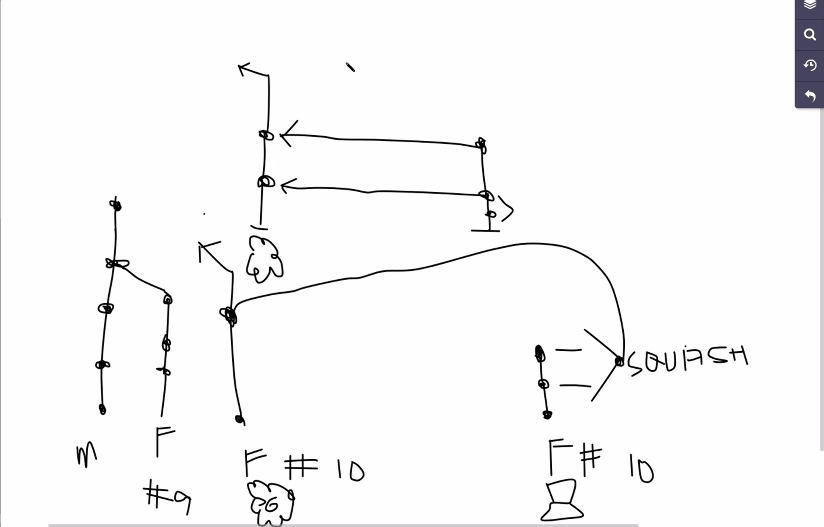 SQUASH
M
F
#9
F # 10
F # 10